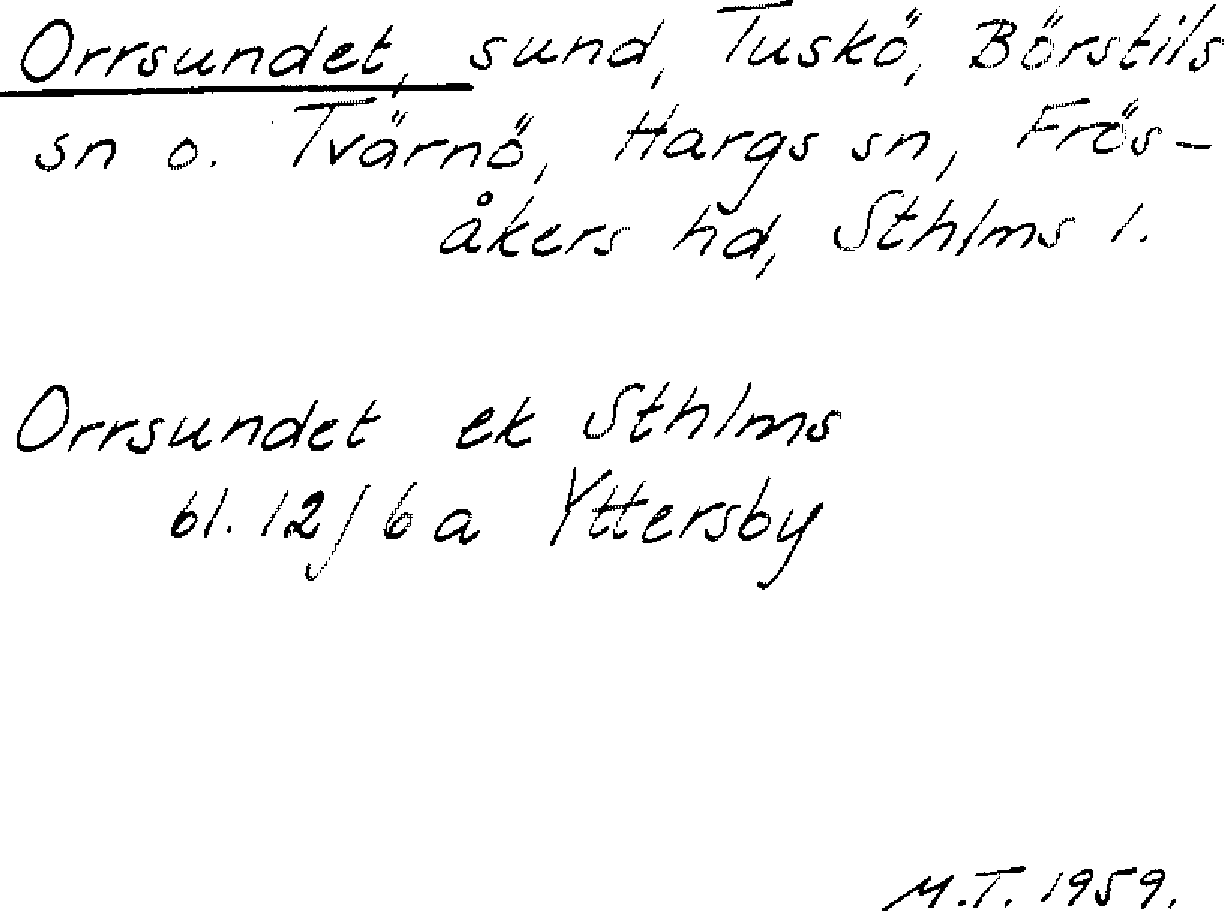 Orrsundet, sund, Tuskö, Börstils
sn o. Tvärnö, Hargs sn, Frös-
åkers hd, Sthlms l.
Orrsundet ek Sthlms
bl. 12/6a Yttersby
M.T. 1959.